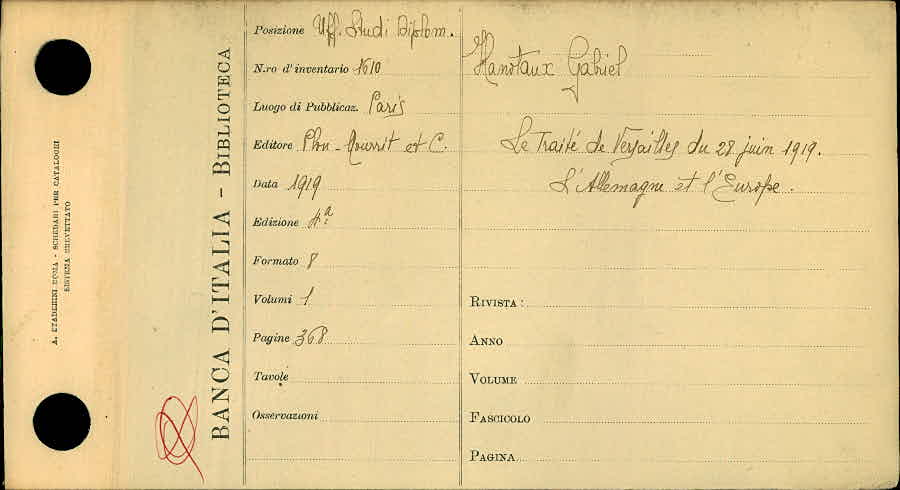 A. STADERINI ROMA - SCHEDARI PER CATALOGHI
SISTEMA BREVETTATO
BANCA D'ITALIA - BIBLIOTECA
Posizione Uff. Studi Diplom.
N.ro d'inventario 1610
Luogo di Pubblicaz. Paris
Editore Plon-Nourrit et C.
Data 1919
Edizione 4ª
Formato 8
Volumi 1
Pagine 368
Tavole
Osservazioni
Hanotaux Gabriel
Le Traité de Versailles du 28 juin 1919.
L'Allemagne et l'Europe.
RIVISTA:
ANNO
VOLUME
FASCICOLO
PAGINA